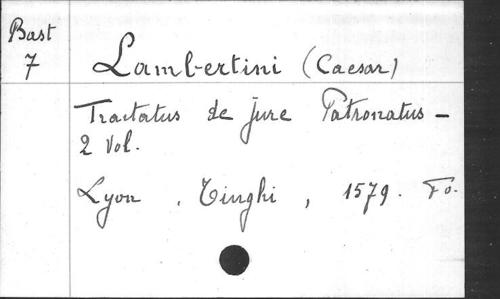 Bast
7
Lambertini (Caesar)
Tractatus de jure Patronatus -
2 Vol.
Lyon, Tinghi, 1579. Fo.